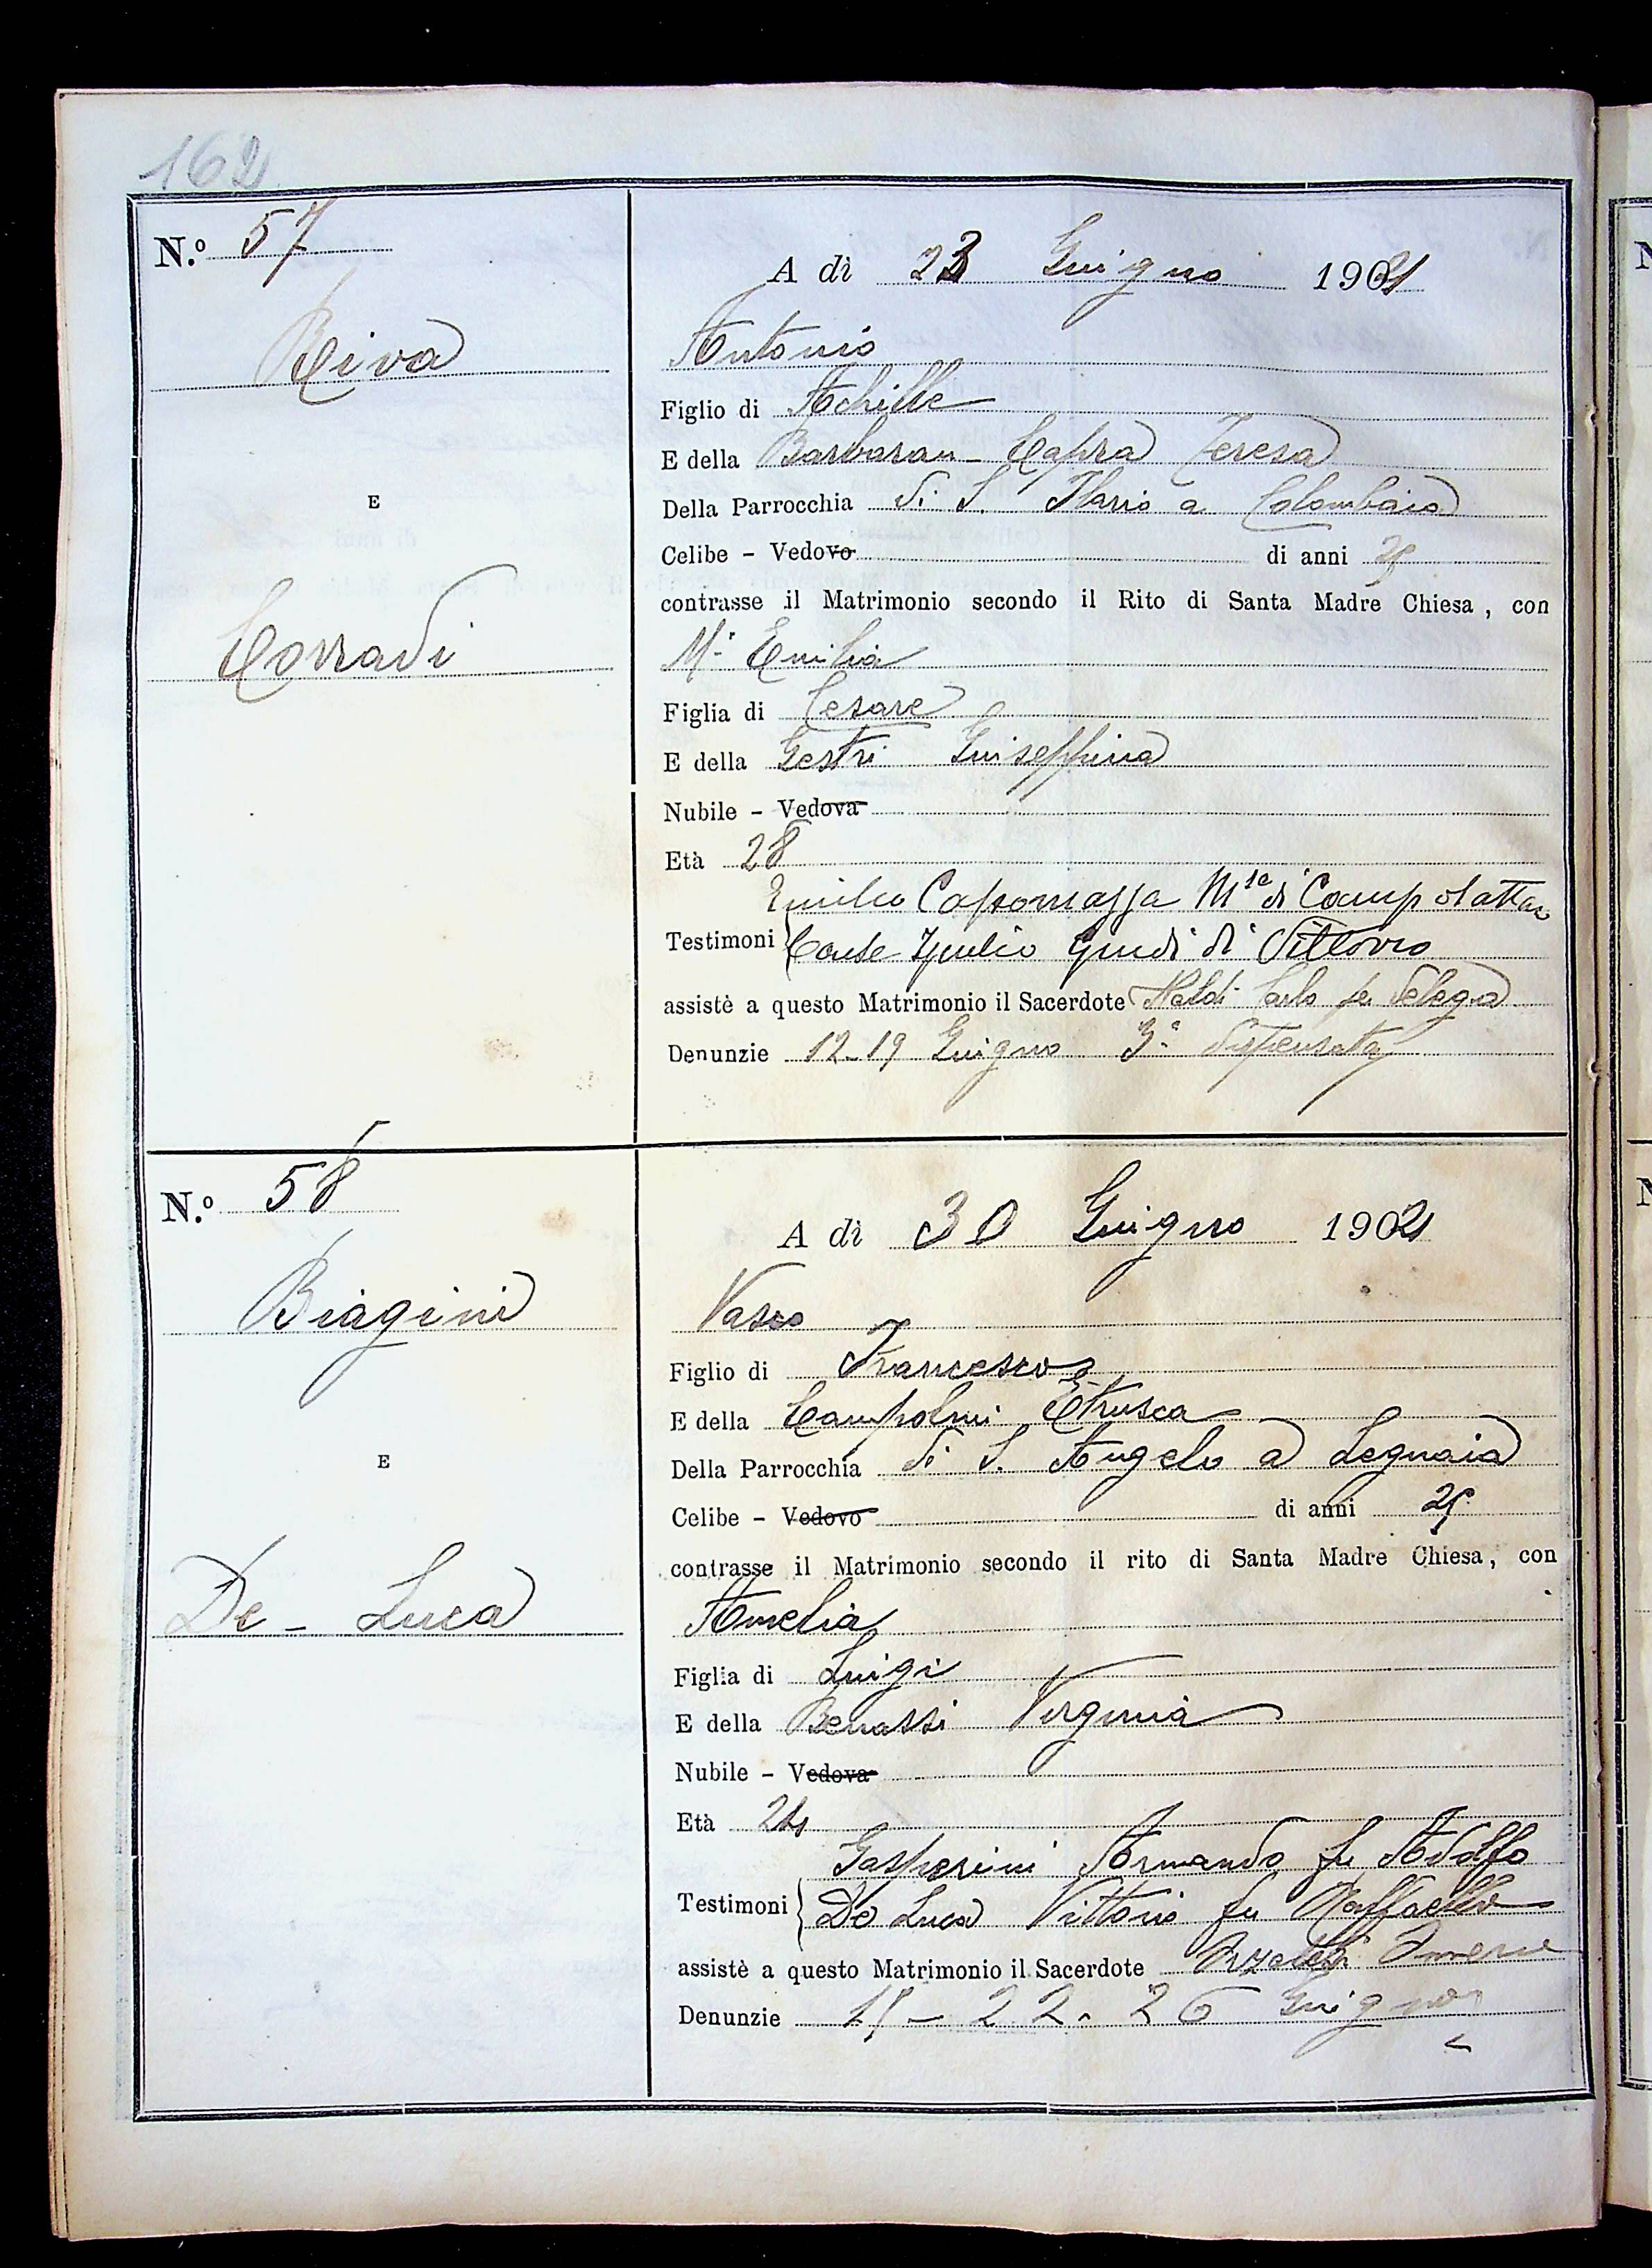 162
N.º 57
A dì 23 Giugno 1902
Riva
Antonio
Figlio di Achille
E della Barbaran - Capra Teresa
Della Parrocchia di S. Ilario a Colombaia
E
Celibe - Vedovo di anni 25
contrasse il Matrimonio secondo il Rito di Santa Madre Chiesa, con
Corradi
Mª Emilia
Figlia di Cesare
E della Gestri Giuseppina
Nubile - Vedova
Età 28
Emilio Capomazza M.se di Campolattaro
Testimoni Conte Giulio Guidi di Vittorio
assistè a questo Matrimonio il Sacerdote Naldi Carlo per delega
Denunzie 12-19 Giugno 3ª dispensata
N.º 58
A dì 30 Giugno 1902
Biagini
Vasco
Figlio di Francesco
E della Campolmi Etrusca
Della Parrocchia di S. Angelo a Legnaia
E
Celibe - Vedovo di anni 25
contrasse il Matrimonio secondo il rito di Santa Madre Chiesa, con
De - Luca
Amelia
Figlia di Luigi
E della Benassi Virginia
Nubile - Vedova
Età 24
Gasperini Armando fu Adolfo
Testimoni De Luca Vittorio fu Raffaello
assistè a questo Matrimonio il Sacerdote
Denunzie 15 - 22 - 26 Giugno